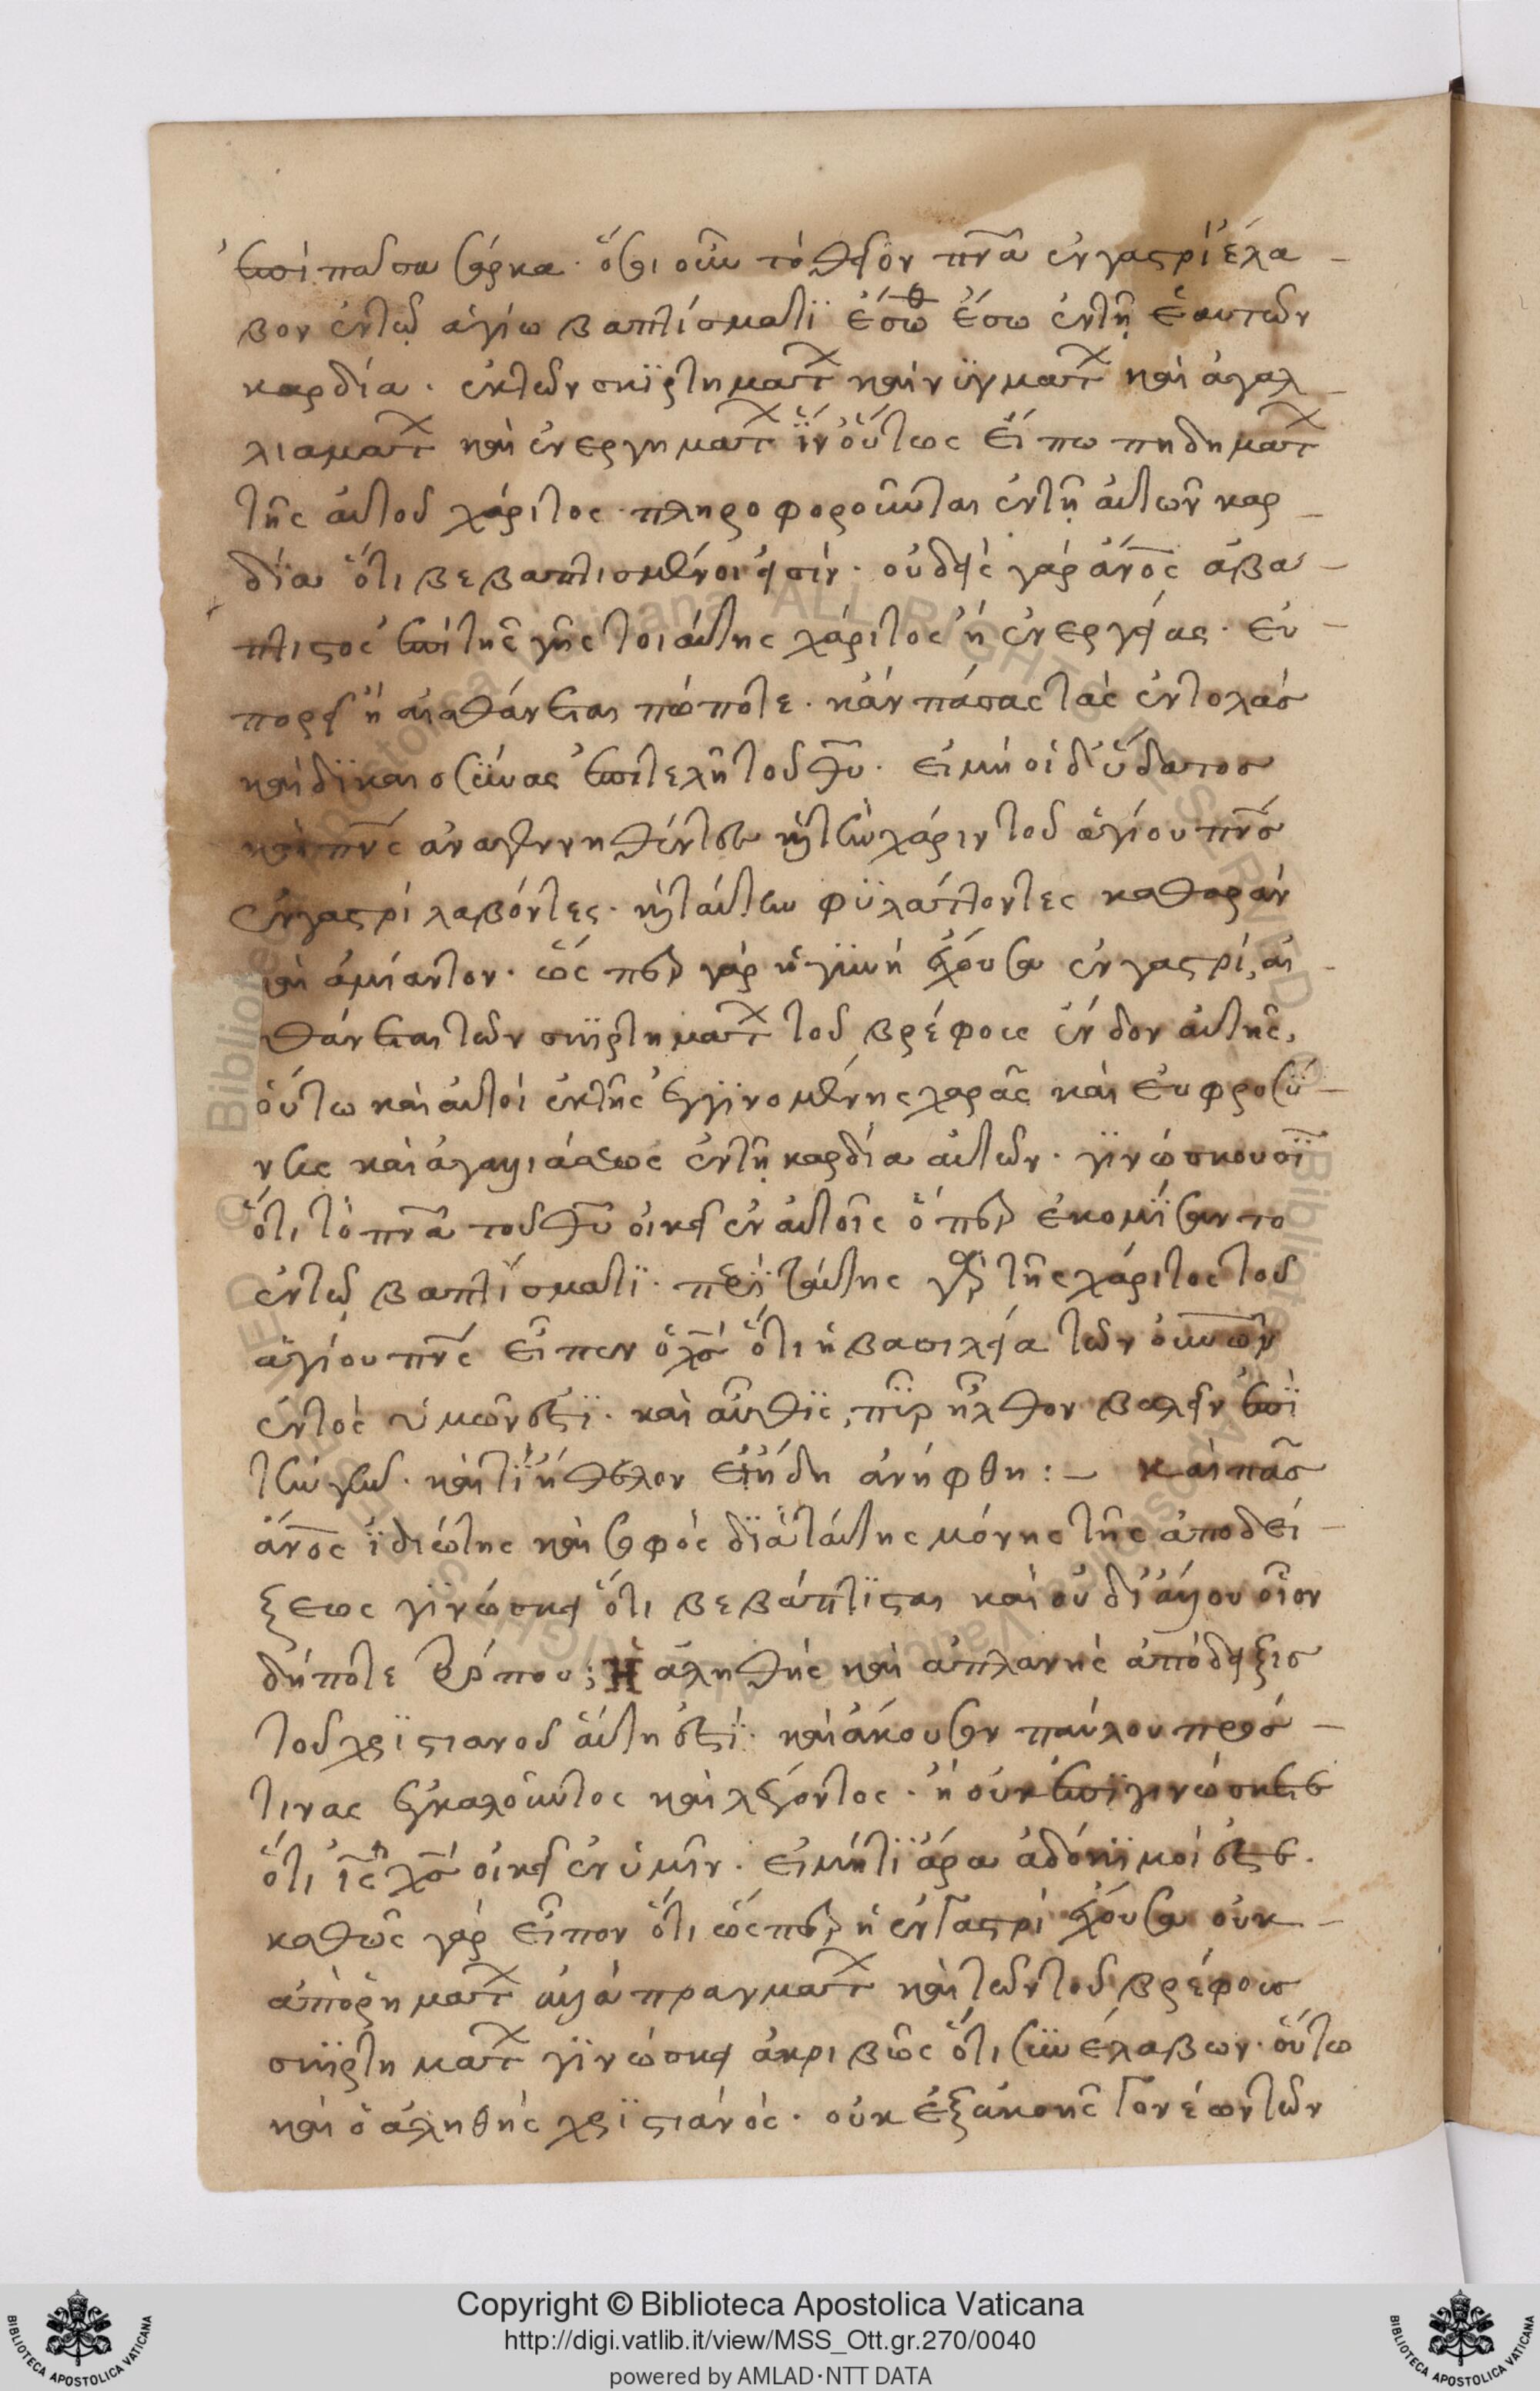 ἐπὶ πᾶσα σάρκα· ὅσοι οὖν τὸ θεῖον πν̅α ἐν γαστρὶ ἔλα-
βον ἐν τῷ ἁγίω βαπτίσματϊ ἔσωθ ἔσω ἐν τῇ ἑαυτῶν
καρδία· ἐκ τῶν σκϊρτημάτ καὶ νϋγμάτ καὶ ἀγαλ-
λιαμάτ καὶ ἐνεργημάτ ἵν οὕτως εἴπω πηδημάτ
τῆς αὐτοῦ χάριτος πληροφοροῦνται ἐν τῇ αὐτῶν καρ-
δΐα ὅτι βεβαπτισμένοι εἰσίν· οὐδεὶς γὰρ ἄν̅ος ἀβά-
πτιστος ἐπὶ τῆς γῆς τοιαύτης χάριτος ἢ ἐνεργείας· εὐ-
πορεῖ ἢ αἰσθάνεται πώποτε· κἂν πάσας τὰς ἐντολὰς
καὶ δϊκαιοσύνας ἐπιτελῆ τοῦ θ̅υ· εἰ μὴ οἱ δι ὕδατος
καὶ πν̅ς ἀναγεννηθέντες καὶ τὴν χάριν τοῦ ἁγίου πν̅ς
ἐν γαστρὶ λαβόντες· καὶ ταύτην φϋλάττοντες καθαρὰν
καὶ ἀμίαντον· ὥς περ γὰρ ἡ γϋνὴ ἔχουσα ἐν γαστρί, αἰ-
σθάνεται τῶν σκϊρτημάτ τοῦ βρέφους ἔνδον αὐτῆς,
οὕτω καὶ αὐτοὶ ἐκ τῆς ἐγγϊνομένης χαρᾶς καὶ εὐφροσύ-
νης καὶ ἀγαλλιάσεως ἐν τῇ καρδία αὐτῶν· γϊνώσκουσϊ
ὅτι τὸ πν̅α τοῦ θ̅υ οἰκεῖ ἐν αὐτοῖς ὅ περ ἐκομΐσαντο
ἐν τῷ βαπτίσματϊ· περὶ ταύτης γὰρ τῆς χάριτος τοῦ
ἁγίου πν̅ς εἶπεν ὁ χ̅ς ὅτι ἡ βασιλεία τῶν οὐν̅ῶν
ἐντὸς ὑμῶν ἐστΐ· καὶ αὖθϊς, πῦρ ἦλθον βαλεῖν ἐπὶ
τὴν γῆν· καὶ τί ἤθελον εἰ ἤδη ἀνήφθη :– Καὶ πᾶς
ἄν̅ος ἰδιώτης καὶ σοφὸς δϊὰ ταύτης μόνης τῆς ἀποδεί-
ξεως γϊνώσκει ὅτι βεβάπτϊσται καὶ οὐ δι ἄλλου οἷον
δήποτε τρόπου; Ἡ ἀληθὴς καὶ ἀπλανὴς ἀπόδειξις
τοῦ χρϊστιανοῦ αὕτη ἐστΐ· καὶ ἄκουσον παύλου πρός-
τινας ἐγκαλοῦντος καὶ λέγοντος· ἢ οὐκ ἐπϊγινώσκετε
ὅτι ι̅ς χ̅ς οἰκεῖ ἐν ὑμῖν· εἰ μή τϊ ἄρα ἀδόκϊμοί ἐστε.
καθὼς γὰρ εἶπον ὅτι ὥς περ ἡ ἐν γαστρὶ ἔχουσα οὐκ-
ἀπὸ ρημάτ ἀλλὰ πραγμάτ καὶ τῶν τοῦ βρέφους
σκϊρτημάτ γϊνώσκει ἀκριβῶς ὅτι συνέλαβων· οὕτω
καὶ ὁ ἀληθὴς χρϊστιανός· οὐκ ἐξ ἀκοῆς γονέων τῶν